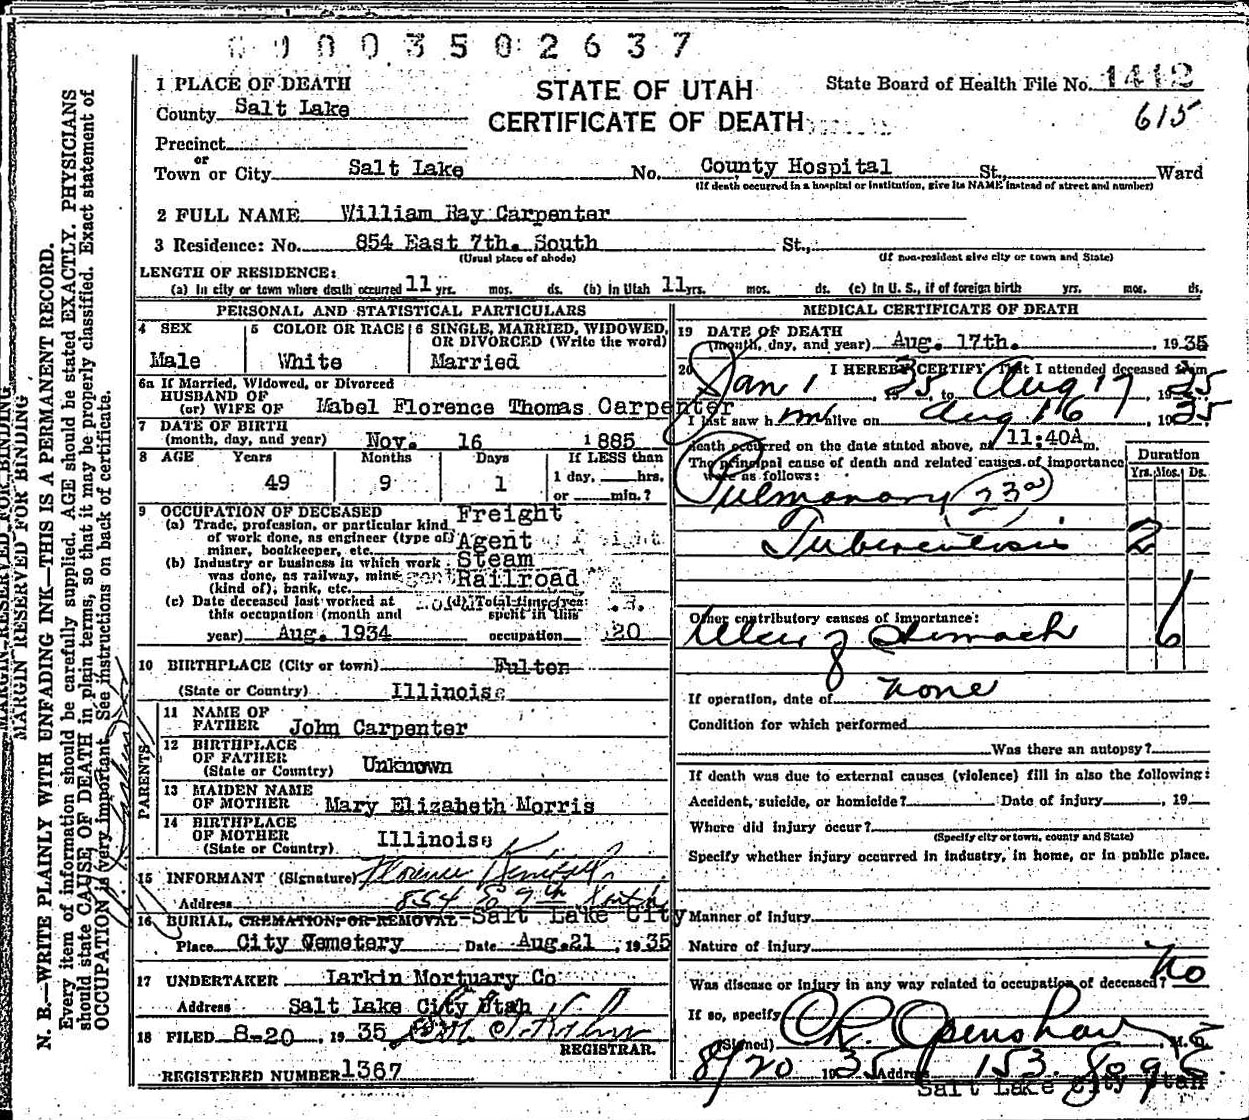 00003502637
STATE OF UTAH
CERTIFICATE OF DEATH
State Board of Health File No. 1412
615
1 PLACE OF DEATH
County Salt Lake
Precinct
or
Town or City Salt Lake No. County Hospital St., Ward
(If death occurred in a hospital or institution, give its NAME instead of street and number)
2 FULL NAME William Ray Carpenter
3 Residence: No. 854 East 7th. South St.,
(Usual place of abode) (If non-resident give city or town and State)
LENGTH OF RESIDENCE:
(a) In city or town where death occurred 11 yrs. mos. ds. (b) In Utah 11 yrs. mos. ds. (c) In U. S., if of foreign birth yrs. mos. ds.
PERSONAL AND STATISTICAL PARTICULARS
4 SEX 5 COLOR OR RACE 6 SINGLE, MARRIED, WIDOWED,
OR DIVORCED (Write the word)
Male White Married
6a If Married, Widowed, or Divorced
HUSBAND OF
(or) WIFE OF Mabel Florence Thomas Carpenter
7 DATE OF BIRTH
(month, day, and year) Nov. 16 1885
8 AGE Years Months Days If LESS than
49 9 1 1 day, hrs.
or min.?
9 OCCUPATION OF DECEASED
(a) Trade, profession, or particular kind
of work done, as engineer (type of)
miner, bookkeeper, etc.
Freight
Agent
(b) Industry or business in which work
was done, as railway, mine
(kind of); bank, etc.
Steam
Railroad
(c) Date deceased last worked at
this occupation (month and
year) Aug. 1934
(d) Total time (years)
spent in this
occupation 20
10 BIRTHPLACE (City or town) Fulton
(State or Country) Illinoise
PARENTS
11 NAME OF
FATHER John Carpenter
12 BIRTHPLACE
OF FATHER
(State or Country) Unknown
13 MAIDEN NAME
OF MOTHER Mary Elizabeth Morris
14 BIRTHPLACE
OF MOTHER
(State or Country) Illinoise
15 INFORMANT (Signature) Florence
Address 854 E 7th South
16 BURIAL, CREMATION, OR REMOVAL Salt Lake City
Place City Cemetery Date Aug. 21, 1935
17 UNDERTAKER Larkin Mortuary Co
Address Salt Lake City Utah
18 FILED 8-20, 1935
REGISTRAR.
REGISTERED NUMBER 1367
MEDICAL CERTIFICATE OF DEATH
19 DATE OF DEATH
(month, day, and year) Aug. 17th. , 1935
20 I HEREBY CERTIFY, That I attended deceased from
Jan 1, 1935, to Aug 17, 1935
I last saw him alive on Aug 16, 1935
death occurred on the date stated above, at 11:40A m.
The principal cause of death and related causes of importance
were as follows:
Duration
Yrs. Mos. Ds.
Pulmonary 23a
Tuberculosis 2
Other contributory causes of importance:
Ulcer of Stomach 6
If operation, date of none
Condition for which performed
Was there an autopsy?
If death was due to external causes (violence) fill in also the following:
Accident, suicide, or homicide? Date of injury , 19
Where did injury occur?
(Specify city or town, county and State)
Specify whether injury occurred in industry, in home, or in public place.
Manner of Injury
Nature of Injury
Was disease or injury in any way related to occupation of deceased? No
If so, specify
(Signed) C R Openshaw, M. D.
8/20 1935 Address 153 So 9 E
Salt Lake City Utah
MARGIN RESERVED FOR BINDING
MARGIN RESERVED FOR BINDING
N. B.—WRITE PLAINLY WITH UNFADING INK—THIS IS A PERMANENT RECORD.
Every item of information should be carefully supplied. AGE should be stated EXACTLY. PHYSICIANS
should state CAUSE OF DEATH in plain terms, so that it may be properly classified. Exact statement of
OCCUPATION is very important. See instructions on back of certificate.